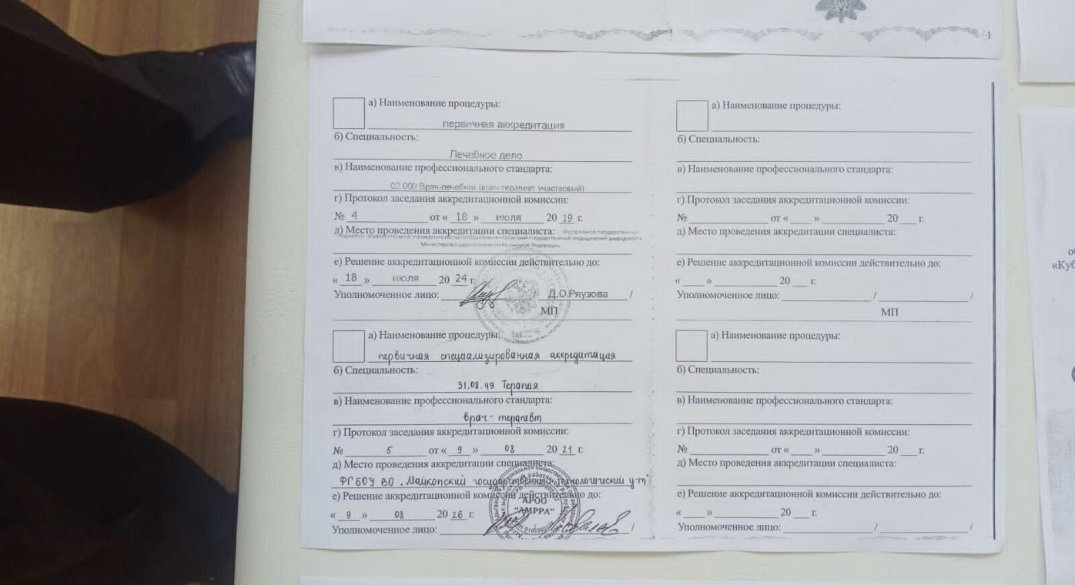 а) Наименование процедуры:
первичная аккредитация
б) Специальность:
Лечебное дело
в) Наименование профессионального стандарта:
02.009 Врач-лечебник (врач-терапевт участковый)
г) Протокол заседания аккредитационной комиссии:
№ 4 от « 18 » июля 20 19 г.
д) Место проведения аккредитации специалиста:
е) Решение аккредитационной комиссии действительно до:
« 18 » июля 20 24 г.
Уполномоченное лицо: Д.О.Ряузова /
МП
а) Наименование процедуры:
первичная специализированная аккредитация
б) Специальность:
31.08.49 Терапия
в) Наименование профессионального стандарта:
врач-терапевт
г) Протокол заседания аккредитационной комиссии:
№ 5 от « 9 » 08 20 21 г.
д) Место проведения аккредитации специалиста:
ФГБОУ ВО „Майкопский государственный технологический у-т"
е) Решение аккредитационной комиссии действительно до:
« 9 » 08 20 26 г.
Уполномоченное лицо: /
АРОО
"АМРРА"
а) Наименование процедуры:
б) Специальность:
в) Наименование профессионального стандарта:
г) Протокол заседания аккредитационной комиссии:
№ от « » 20 г.
д) Место проведения аккредитации специалиста:
е) Решение аккредитационной комиссии действительно до:
« » 20 г.
Уполномоченное лицо: / /
МП
а) Наименование процедуры:
б) Специальность:
в) Наименование профессионального стандарта:
г) Протокол заседания аккредитационной комиссии:
№ от « » 20 г.
д) Место проведения аккредитации специалиста:
е) Решение аккредитационной комиссии действительно до:
« » 20 г.
Уполномоченное лицо: / /
«Куб